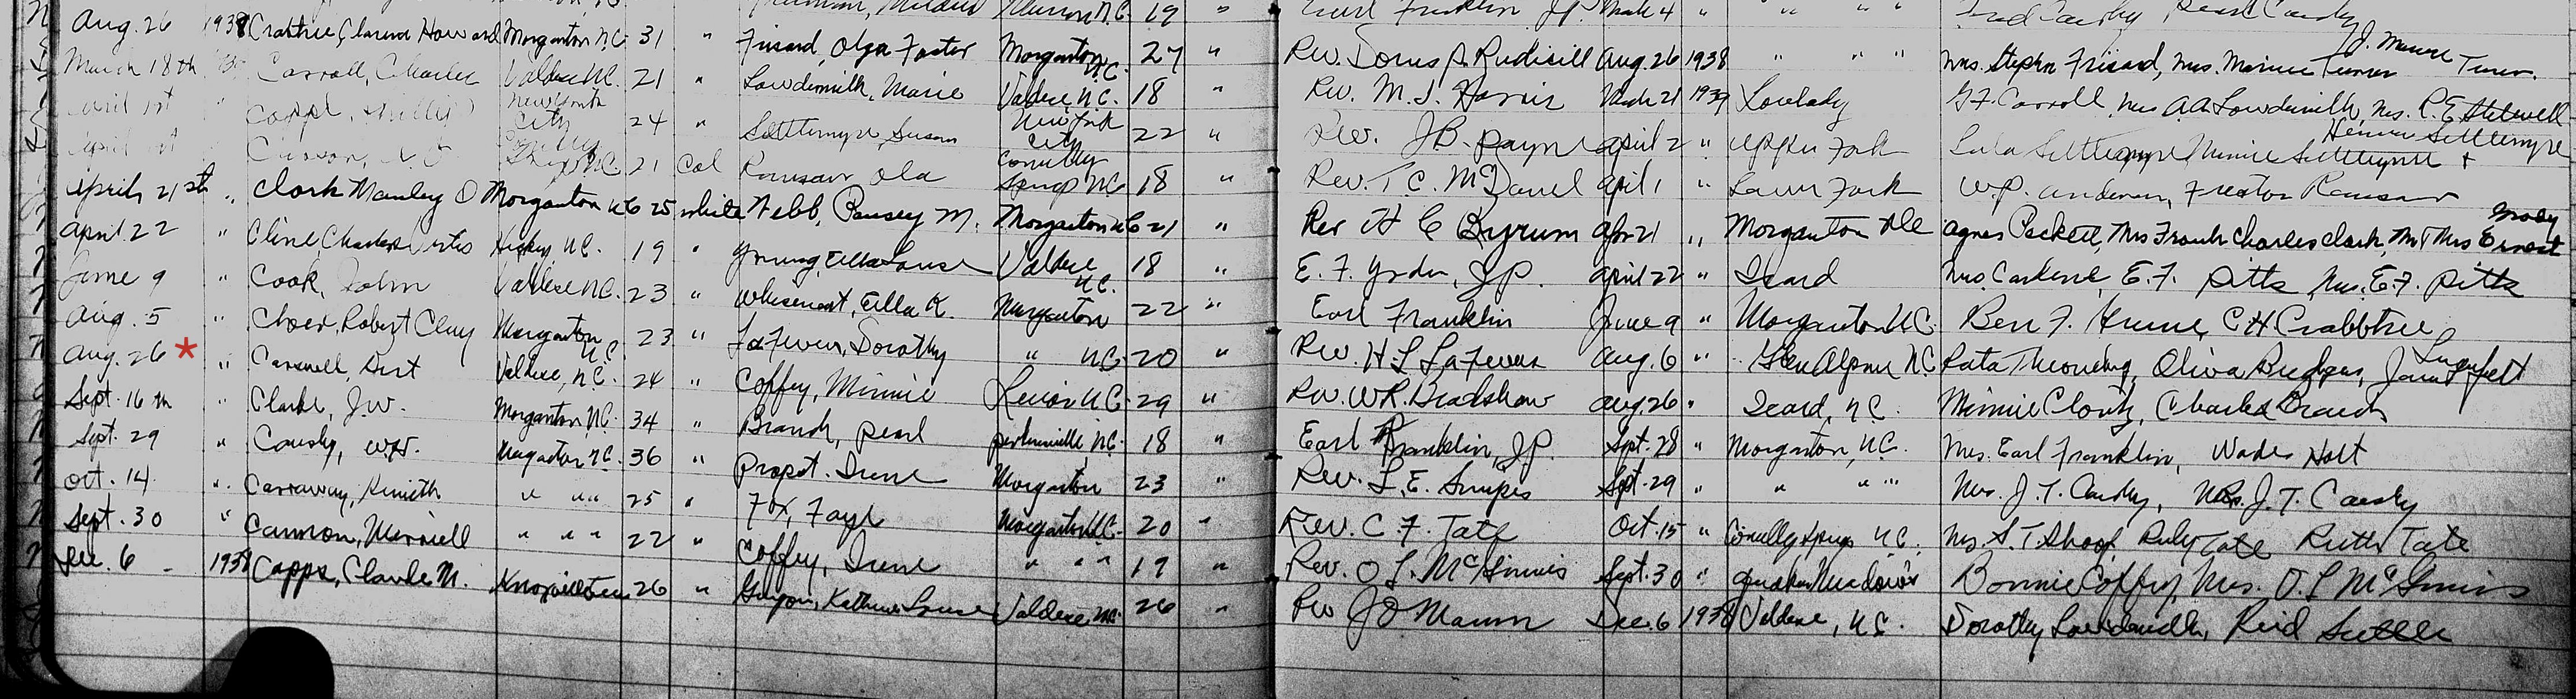 Mildred Marion N.C. 19 " Earl Franklin J.P. March 4 " " " " Fred Causby Pearl Causby
Aug. 26 1938 Crabtree, Clarence Howard Morganton N.C. 31 " Frisard, Olga Foster Morganton N.C. 27 " Rev. Dorus P. Rudisill Aug. 26 1938 " " " Mrs. Stephen Frisard, Mrs. Maurice Turner J. Maurice Turner.
March 18th Carroll, Charles Valdese N.C. 21 " Lowdermilk, Marie Valdese, N.C. 18 " Rev. M. J. Harris March 21 1939 Lovelady G.F. Carroll, Mrs. A.A. Lowdermilk, Mrs. R.E. Stilwell
April 1st " New York City 24 " Settlemyre, Susan New York City 22 " Rev. J.B. Payne April 2 " Upper Fork Lula Settlemyre Minnie Settlemyre + Settlemyre
April 1st " Connelly Springs N.C. 21 Col Ramsaur Ola Connelly Springs N.C. 18 " Rev. T. C. McDaniel April 1 " Lower Fork W.P. Ramsaur
April 21st " Clark Manley O Morganton N.C. 25 white Webb, Pansey M. Morganton N.C. 21 " Rev H C Byrum Apr 21 " Morganton N.C. Agnes Puckett, Mrs Frank Charles Clark, Mr & Mrs Ernest Grady
April 22 " Cline Charles Hickory, N.C. 19 " Young, Ella Louise Valdese N.C. 18 " E. F. Yoder, J.P. April 22 " Icard Mrs. E. F. Pitts, Mrs. E.F. Pitts
June 9 " Cook, John Valdese N.C. 23 " Whisenant, Ella K. Morganton 22 " Earl Franklin June 9 " Morganton N.C. Ben F. C H Crabbtree
Aug. 5 " Robert Clay Morganton N.C. 23 " LaFevers, Dorothy " N.C. 20 " Rev. H. L LaFevers Aug. 6 " Glen Alpine N.C. Oliva Bridges,
Aug. 26 * " Carswell, Valdese, N.C. 24 " Coffey, Minnie Lenoir N.C. 29 " Rev. W.R. Bradshaw Aug. 26 " Icard, N.C. Minnie Clontz, Charles Branch
Sept. 16 th " Clarke, J.W. Morganton, N.C. 34 " Branch, Pearl N.C. 18 " Earl Franklin, J.P. Sept. 28 " Morganton, N.C. Mrs. Earl Franklin, Wade Holt
Sept. 29 " Causby, W.H. Morganton N.C. 36 " Propst. Irene Morganton 23 " Rev. L. E. Snipes Sept. 29 " " " " Mrs. J. T. Causby, J. T. Causby
Oct. 14 " Carraway, Kenneth " " " 25 " Fox, Faye Morganton N.C. 20 " Rev. C. F. Tate Oct. 15 " Connelly Springs N.C. Mrs. S. T. Shoof, Ruby Tate Ruth Tate
Sept. 30 " Cannon, Merriell " " " 22 " Coffey, Irene " " " 19 " Rev. O L. McGinnis Sept. 30 " Quaker Meadows Bonnie Coffey, Mrs. O. L McGinnis
Dec. 6 1938 Capps, Claude M. 26 " Katherine Louise Valdese N.C. 26 " Rev J O Mann Dec. 6 1938 Valdese, N.C. Dorothy Lowdermilk, Reid Suttle